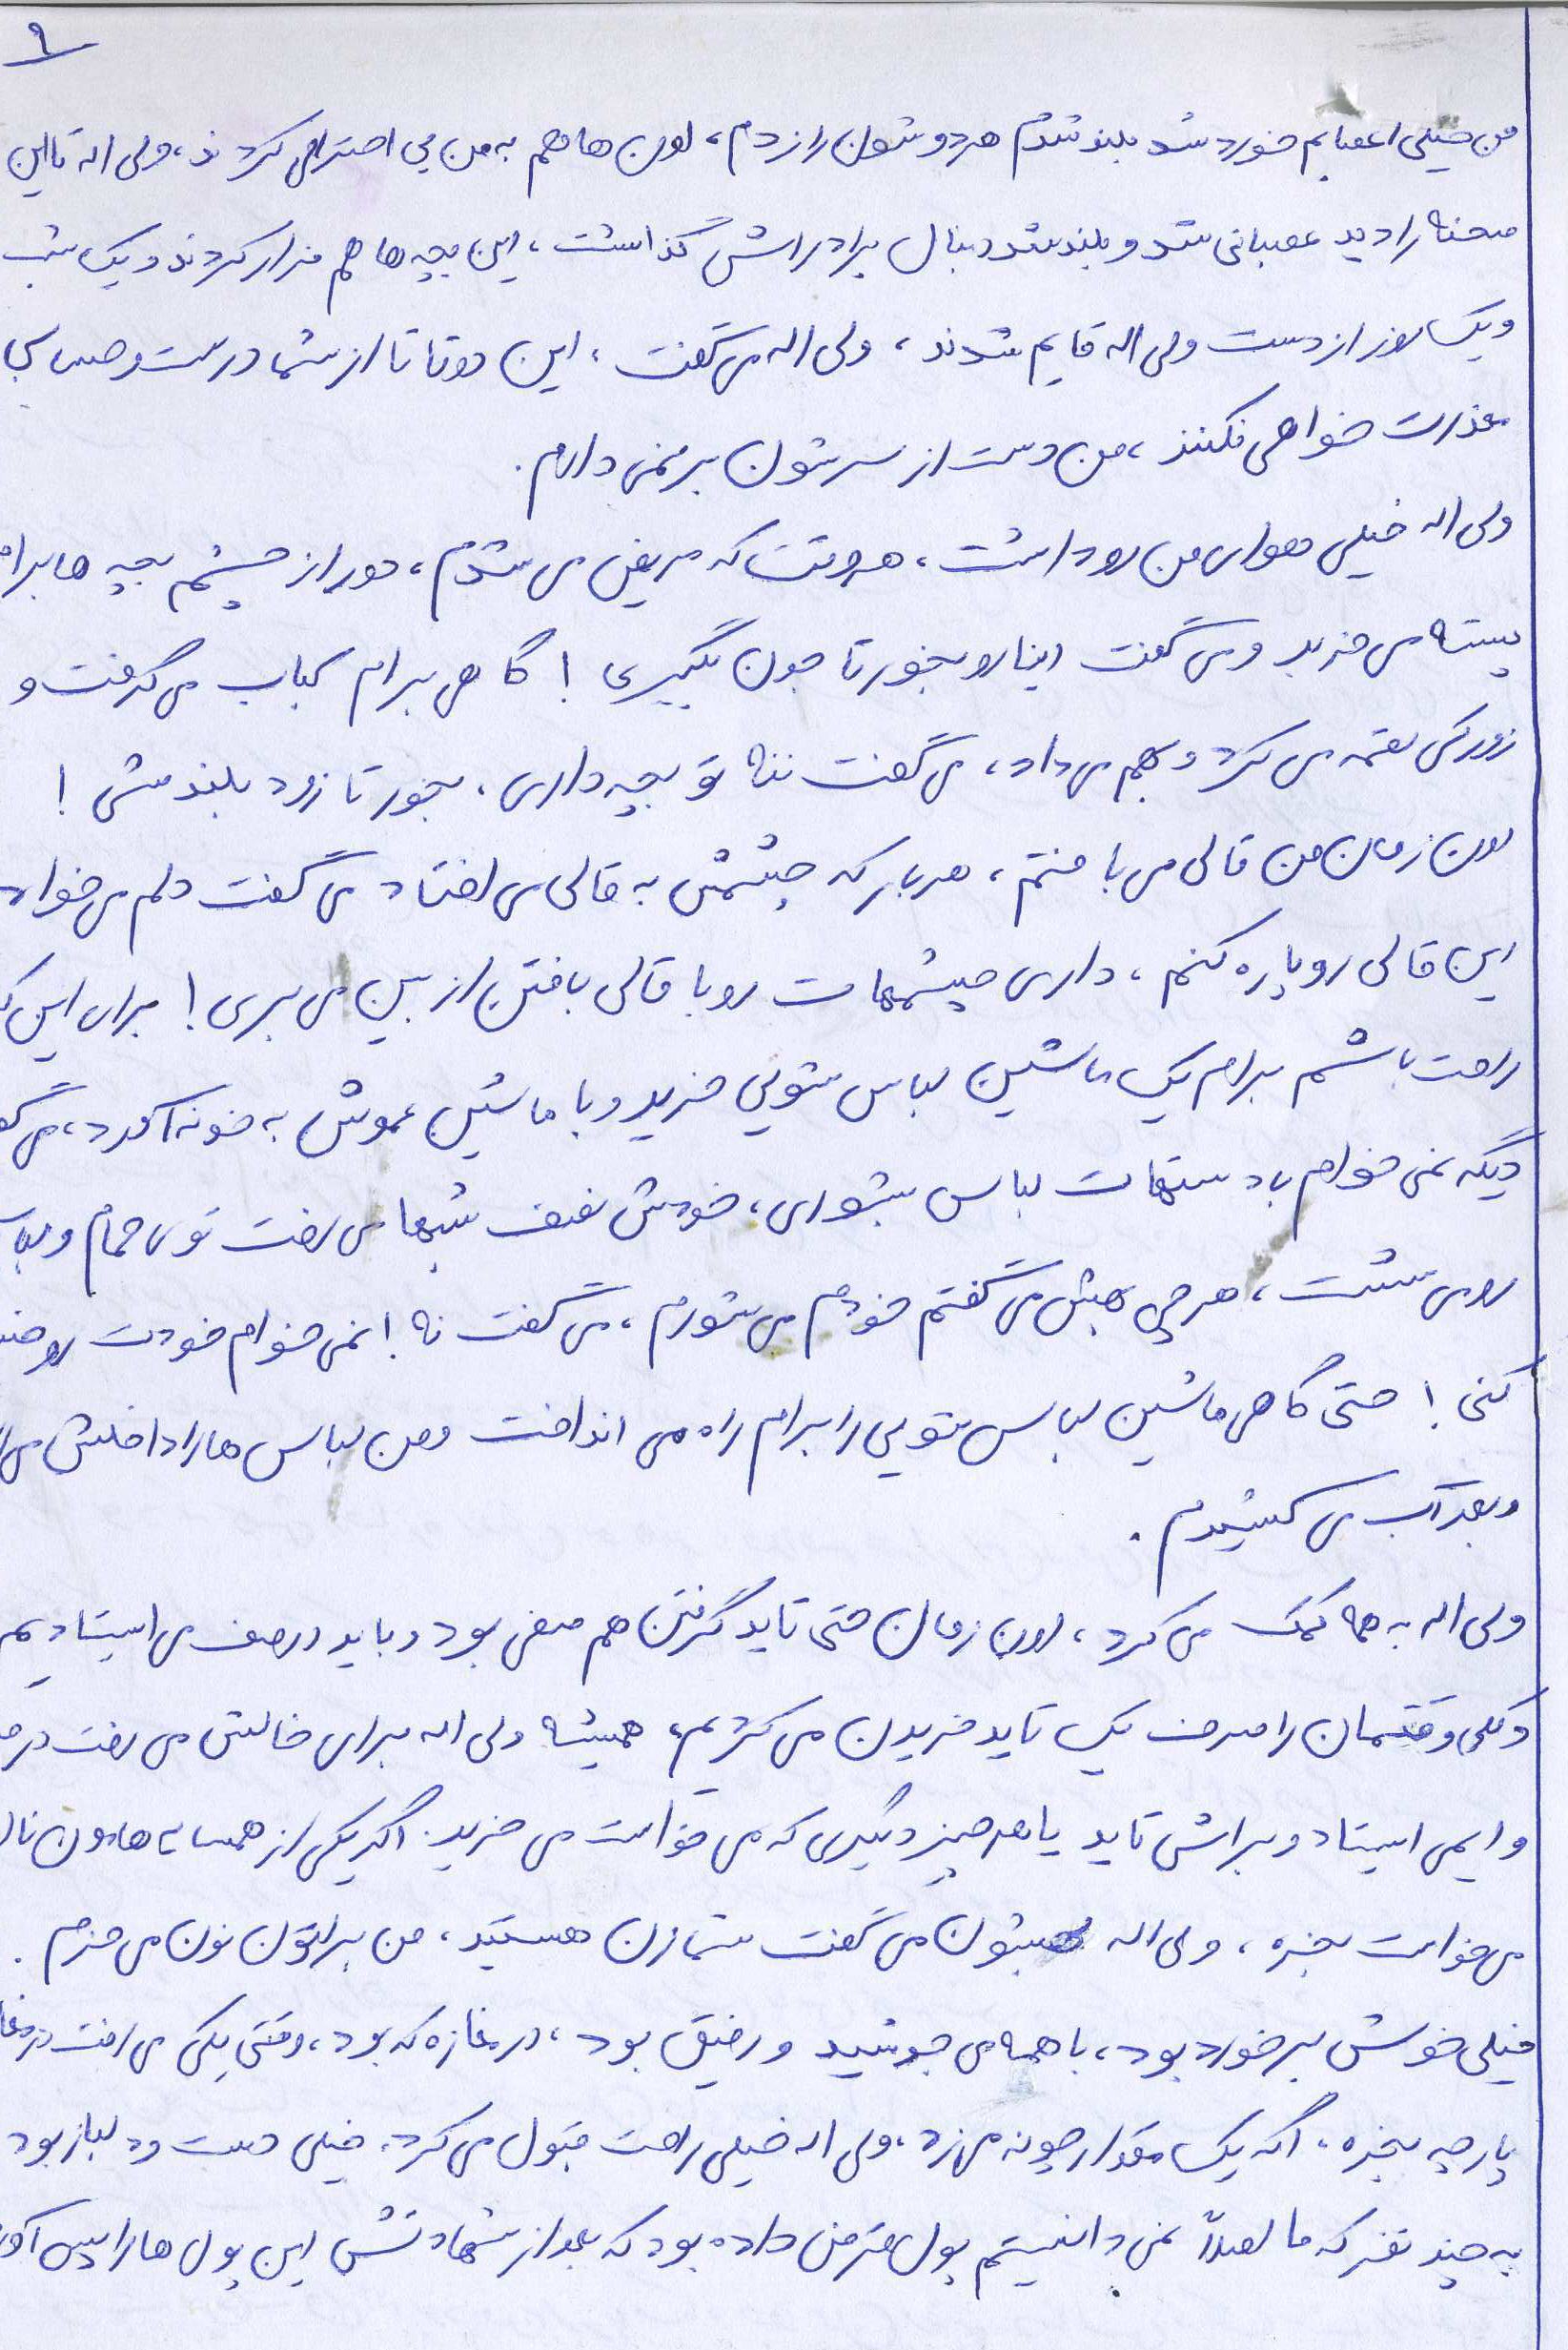 ۹
من خیلی اعصابم خورد شد بلند شدم هردوشون را زدم، اون ها هم به من بی احترامی کردند، ولی اله تا این
صحنه را دید عصبانی شد و بلند شد دنبال برادراش گذاشت، این بچه ها هم فرار کردند و یک شب
و یک روز از دست ولی اله قایم شدند، ولی اله می گفت، این دوتا تا از شما درست و حسابی
معذرت خواهی نکنند، من دست از سرشون برنمی دارم.
ولی اله خیلی هوای من رو داشت، هروقت که مریض می شدم، دور از چشم بچه ها برام
پسته می خرید و می گفت اینا رو بخور تا جون بگیری! گاهی برام کباب می گرفت و
زورکی لقمه می کرد و بهم می داد، می گفت ننه تو بچه داری، بخور تا زود بلند شی!
اون زمان من قالی می بافتم، هر بار که چشمش به قالی می افتاد می گفت دلم می خواد
این قالی رو پاره کنم، داری چشمهات رو با قالی بافتن از بین می بری! برای این که
راحت باشم برام یک ماشین لباس شویی خرید و با ماشین عموش به خونه آورد، می گفت
دیگه نمی خوام با دستهات لباس بشوری، خودش نصف شبها می رفت توی حمام و لباس
رو می شست، هرچی بهش می گفتم خودم می شورم، می گفت نه! نمی خوام خودت رو خسته
کنی! حتی گاهی ماشین لباس شویی را برام راه می انداخت و من لباس ها را داخلش می
و بعد آب می کشیدم.
ولی اله به همه کمک می کرد، اون زمان حتی تاید گرفتن هم صفی بود و باید در صف می ایستادیم
و کلی وقتمان را صرف یک تاید خریدن می کردیم، همیشه ولی اله برای خالش می رفت در
وایمی ایستاد و براش تاید یا هرچیز دیگری که می خواست می خرید. اگر یکی از همسایه هامون نان
می خواست بخره، ولی اله بهشون می گفت شما زن هستید، من براتون نون می خرم.
خیلی خوش برخورد بود، با همه می جوشید و رفیق بود، در مغازه که بود، وقتی یکی می رفت در مغا
پارچه بخره، اگه یک مقدار چونه می زد، ولی اله خیلی راحت قبول می کرد، خیلی دست و دلباز بود
به چند نفر که ما اصلاً نمی دانستیم پول قرض داده بود که بعد از شهادتش این پول ها را پس آوردند